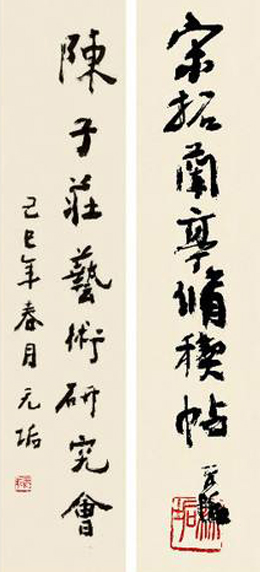 宋拓蘭亭脩稧帖
陳子莊藝術研究會
己巳年春月元垢